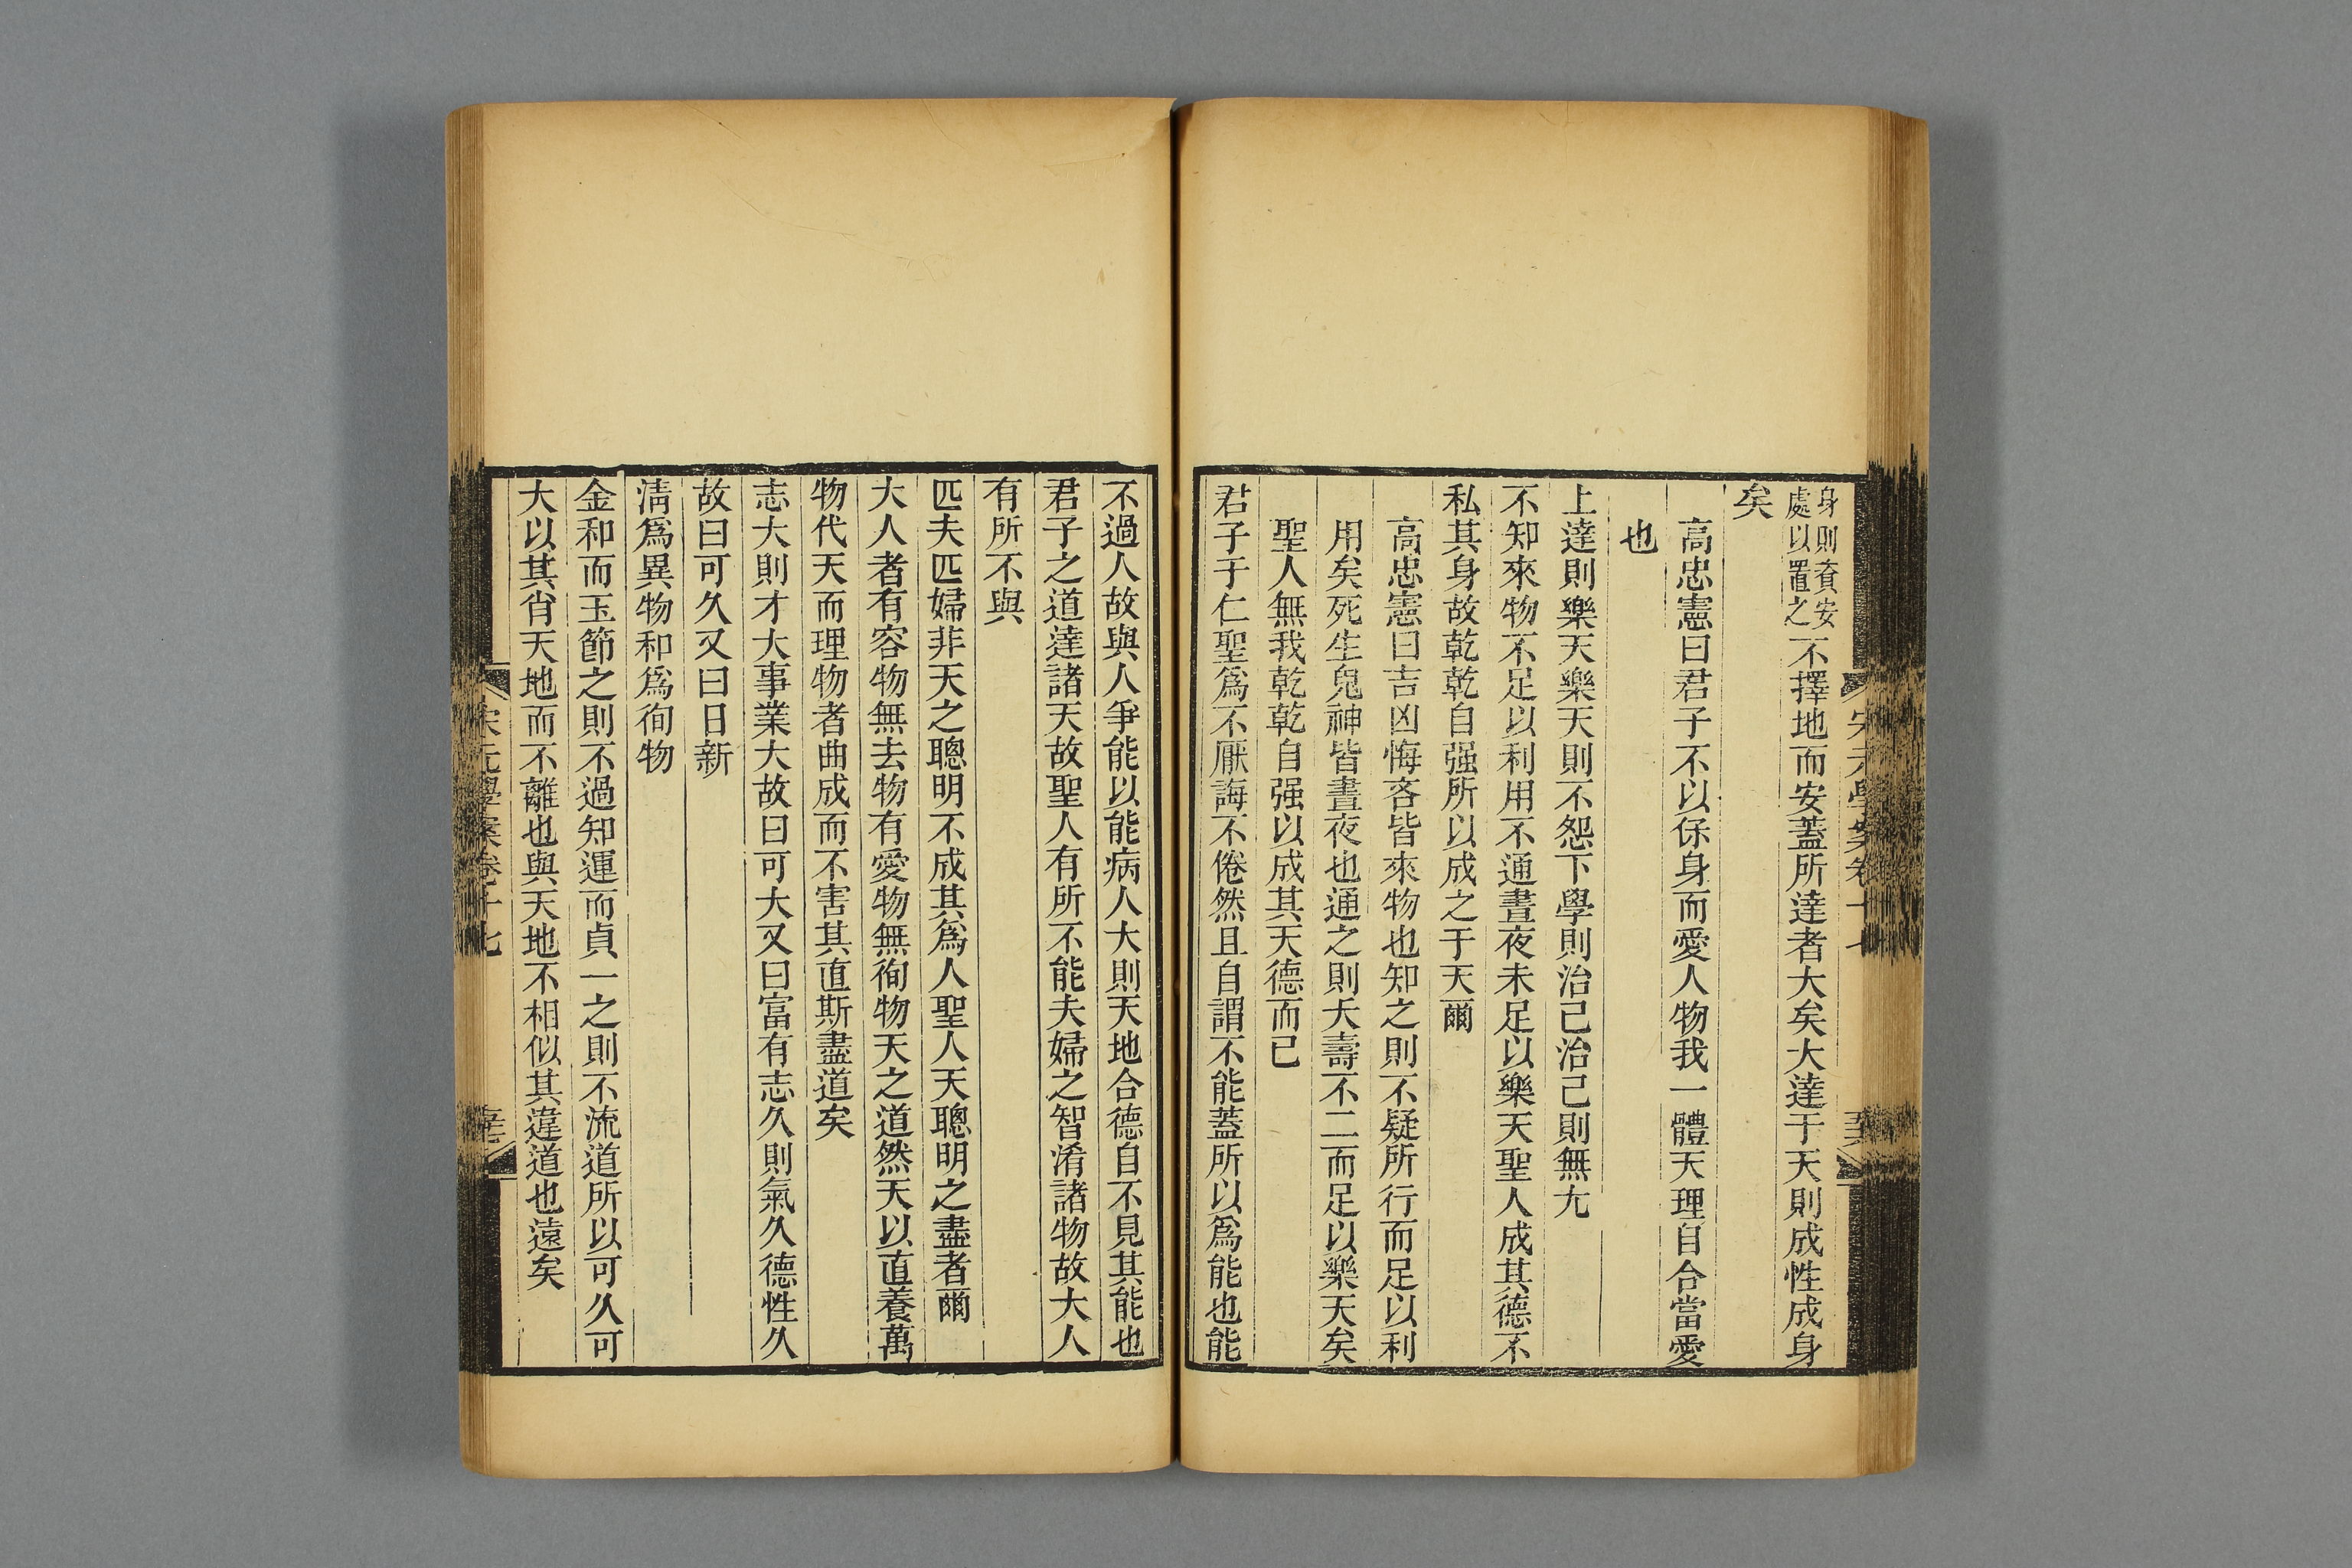 身則資安
處以置之
不擇地而安蓋所達者大矣大達于天則成性成身
矣
高忠憲曰君子不以保身而愛人物我一體天理自合當愛
也
上達則樂天樂天則不怨下學則治己治己則無尤
不知來物不足以利用不通晝夜未足以樂天聖人成其德不
私其身故乾乾自强所以成之于天爾
高忠憲曰吉凶悔吝皆來物也知之則不疑所行而足以利
用矣死生鬼神皆晝夜也通之則夭壽不二而足以樂天矣
聖人無我乾乾自强以成其天德而已
君子于仁聖爲不厭誨不倦然且自謂不能蓋所以爲能也能
不過人故與人爭能以能病人大則天地合德自不見其能也
君子之道達諸天故聖人有所不能夫婦之智淆諸物故大人
有所不與
匹夫匹婦非天之聰明不成其爲人聖人天聰明之盡者爾
大人者有容物無去物有愛物無徇物天之道然天以直養萬
物代天而理物者曲成而不害其直斯盡道矣
志大則才大事業大故曰可大又曰富有志久則氣久德性久
故曰可久又曰日新
淸爲異物和爲徇物
金和而玉節之則不過知運而貞一之則不流道所以可久可
大以其肖天地而不離也與天地不相似其違道也遠矣
宋元學案卷十七